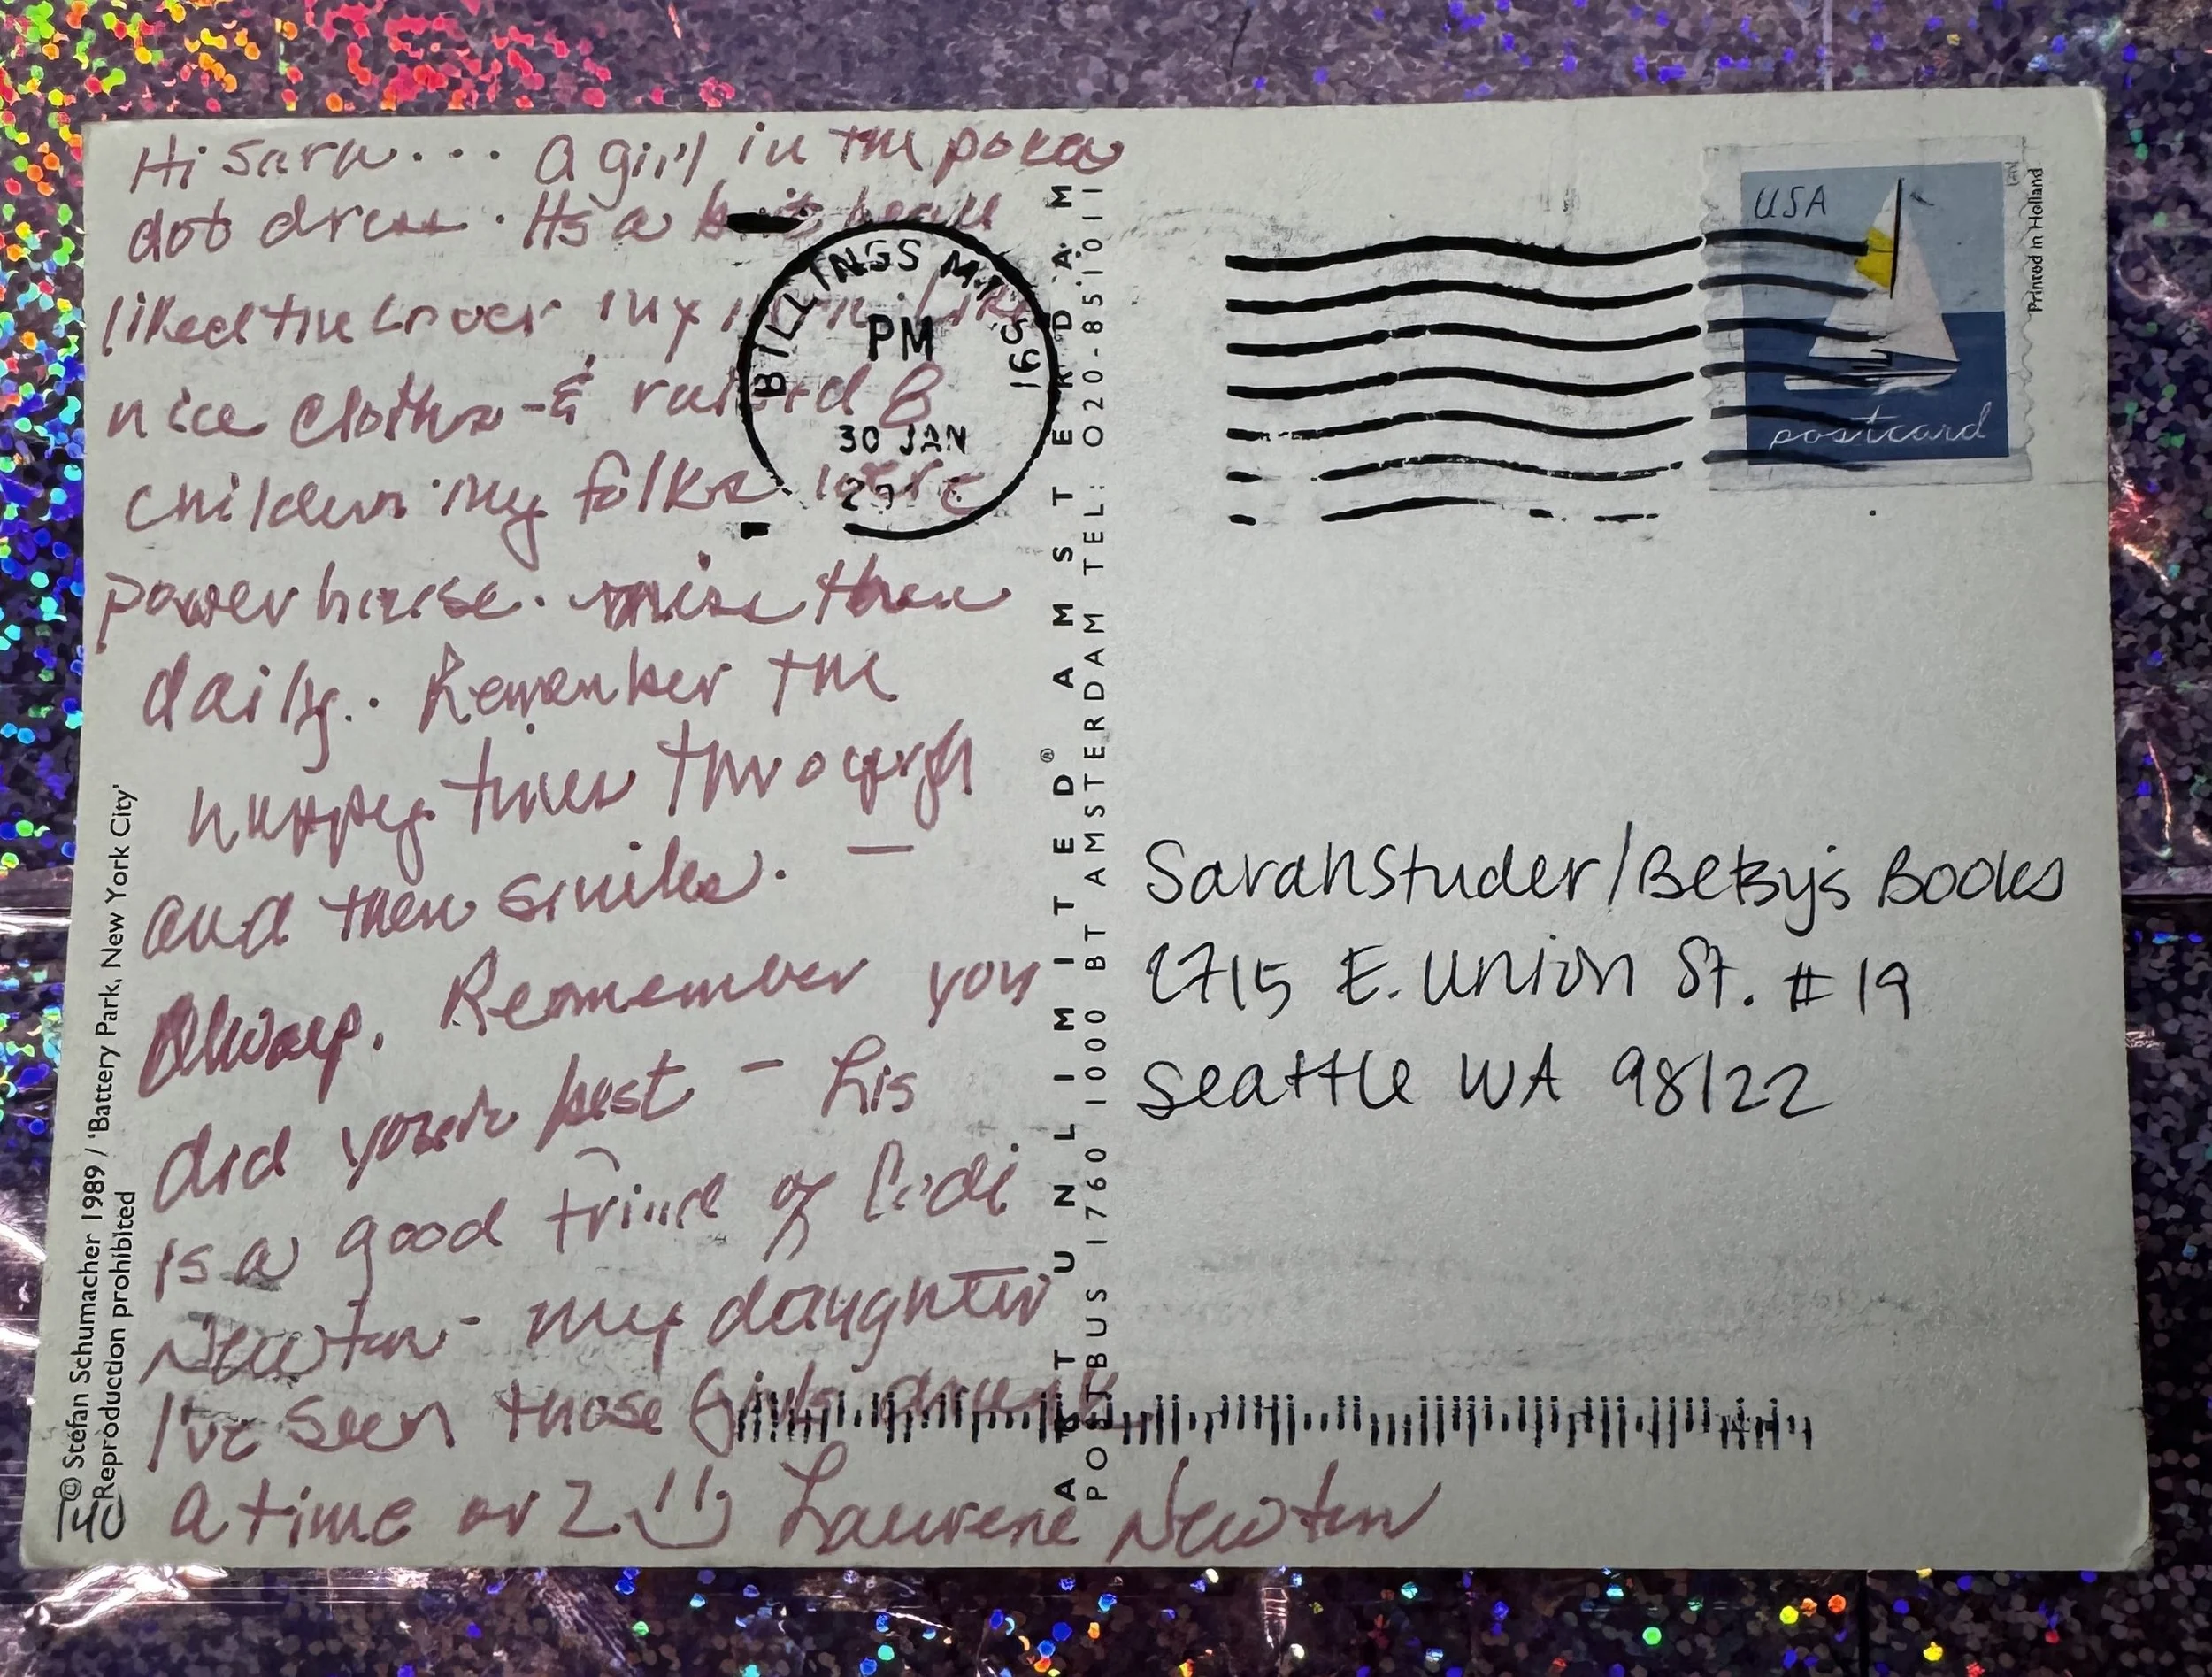 Hi Sara... A girl in the poka
dot dress. Its a
liked the cover my mom. Like
nice cloths - & raised 8
children. my folks were
powerhouse. miss them
daily.. Remember the
happy times through
and then smile. —
Always. Remember you
did your best - Lis
is a good frind of Codi
Newton - my daughter
I've seen those Girls drunk
a time or 2 Laurene Newton
BILLINGS MT 591
PM
30 JAN
USA
postcard
Printed in Holland
Sarah Studer/Betsy's Books
1715 E. Union St. #19
Seattle WA 98122
ART UNLIMITED® AMSTERDAM
POSTBUS 1760 1000 BT AMSTERDAM TEL: 020-851011
© Stefan Schumacher 1989 / 'Battery Park, New York City'
Reproduction prohibited